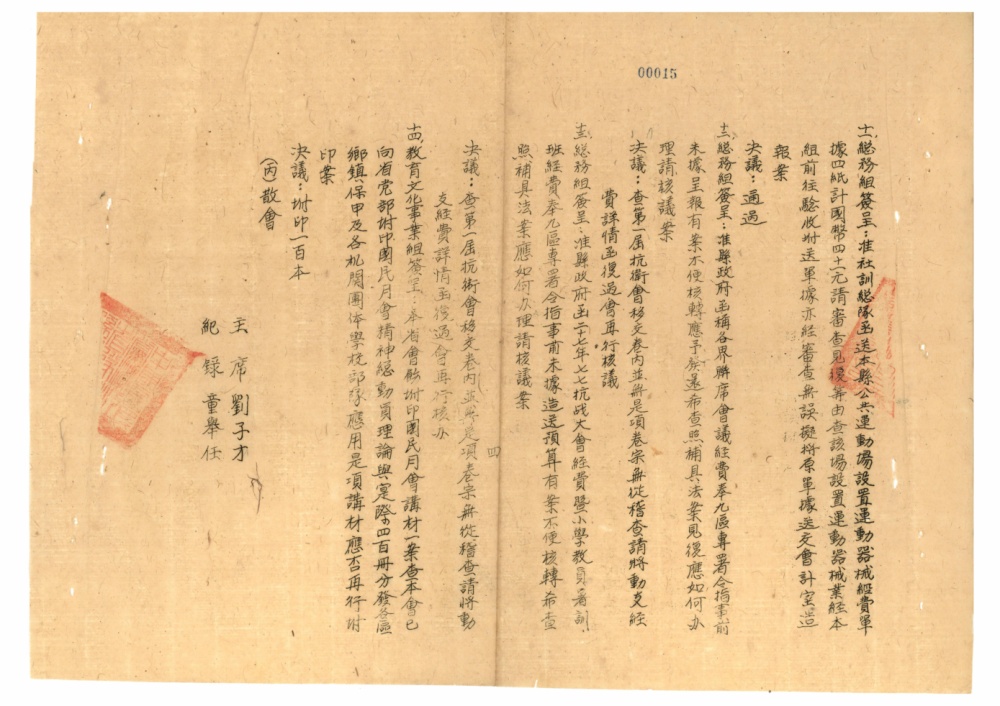 00015
十一、總務組簽呈：准社訓總隊函送本縣公共運動場設置運動器械經費單
據四紙計國幣四十一元請審查見復等由查該場設置運動器械業經本
組前往驗收坿送單據亦經審查無誤擬將原單據送交會計室造
報案
決議：通過
十二、總務組簽呈：准縣政府函稱各界聯席會議經費奉九區專署令指事前
未據呈報有案不便核轉應予發還希查照補具法案見復應如何办
理請核議案
決議：查第一屆抗衛會移交卷內並無是項卷宗無從稽查請將動支經
費詳情函復過會再行核議
十三、總務組簽呈：准縣政府函二十七年七七抗战大會經費暨小學教員暑訓
班經費奉九區專署令指事前未據造送預算有案不便核轉希查
照補具法案應如何办理請核議案
決議：查第一屆抗衛會移交卷內並無是項卷宗無從稽查請將動
支經費詳情函復過會再行核办
四
十四、教育文化事業組簽呈：奉省會飭坿印國民月會講材一案查本會已
向省党部坿印國民月會精神總動員理論與實際四百冊分發各區
鄉鎮保甲及各机関團体學校部隊應用是項講材應否再行坿
印案
決議：坿印一百本
（丙）散會
主席 劉子才
紀錄 童舉任